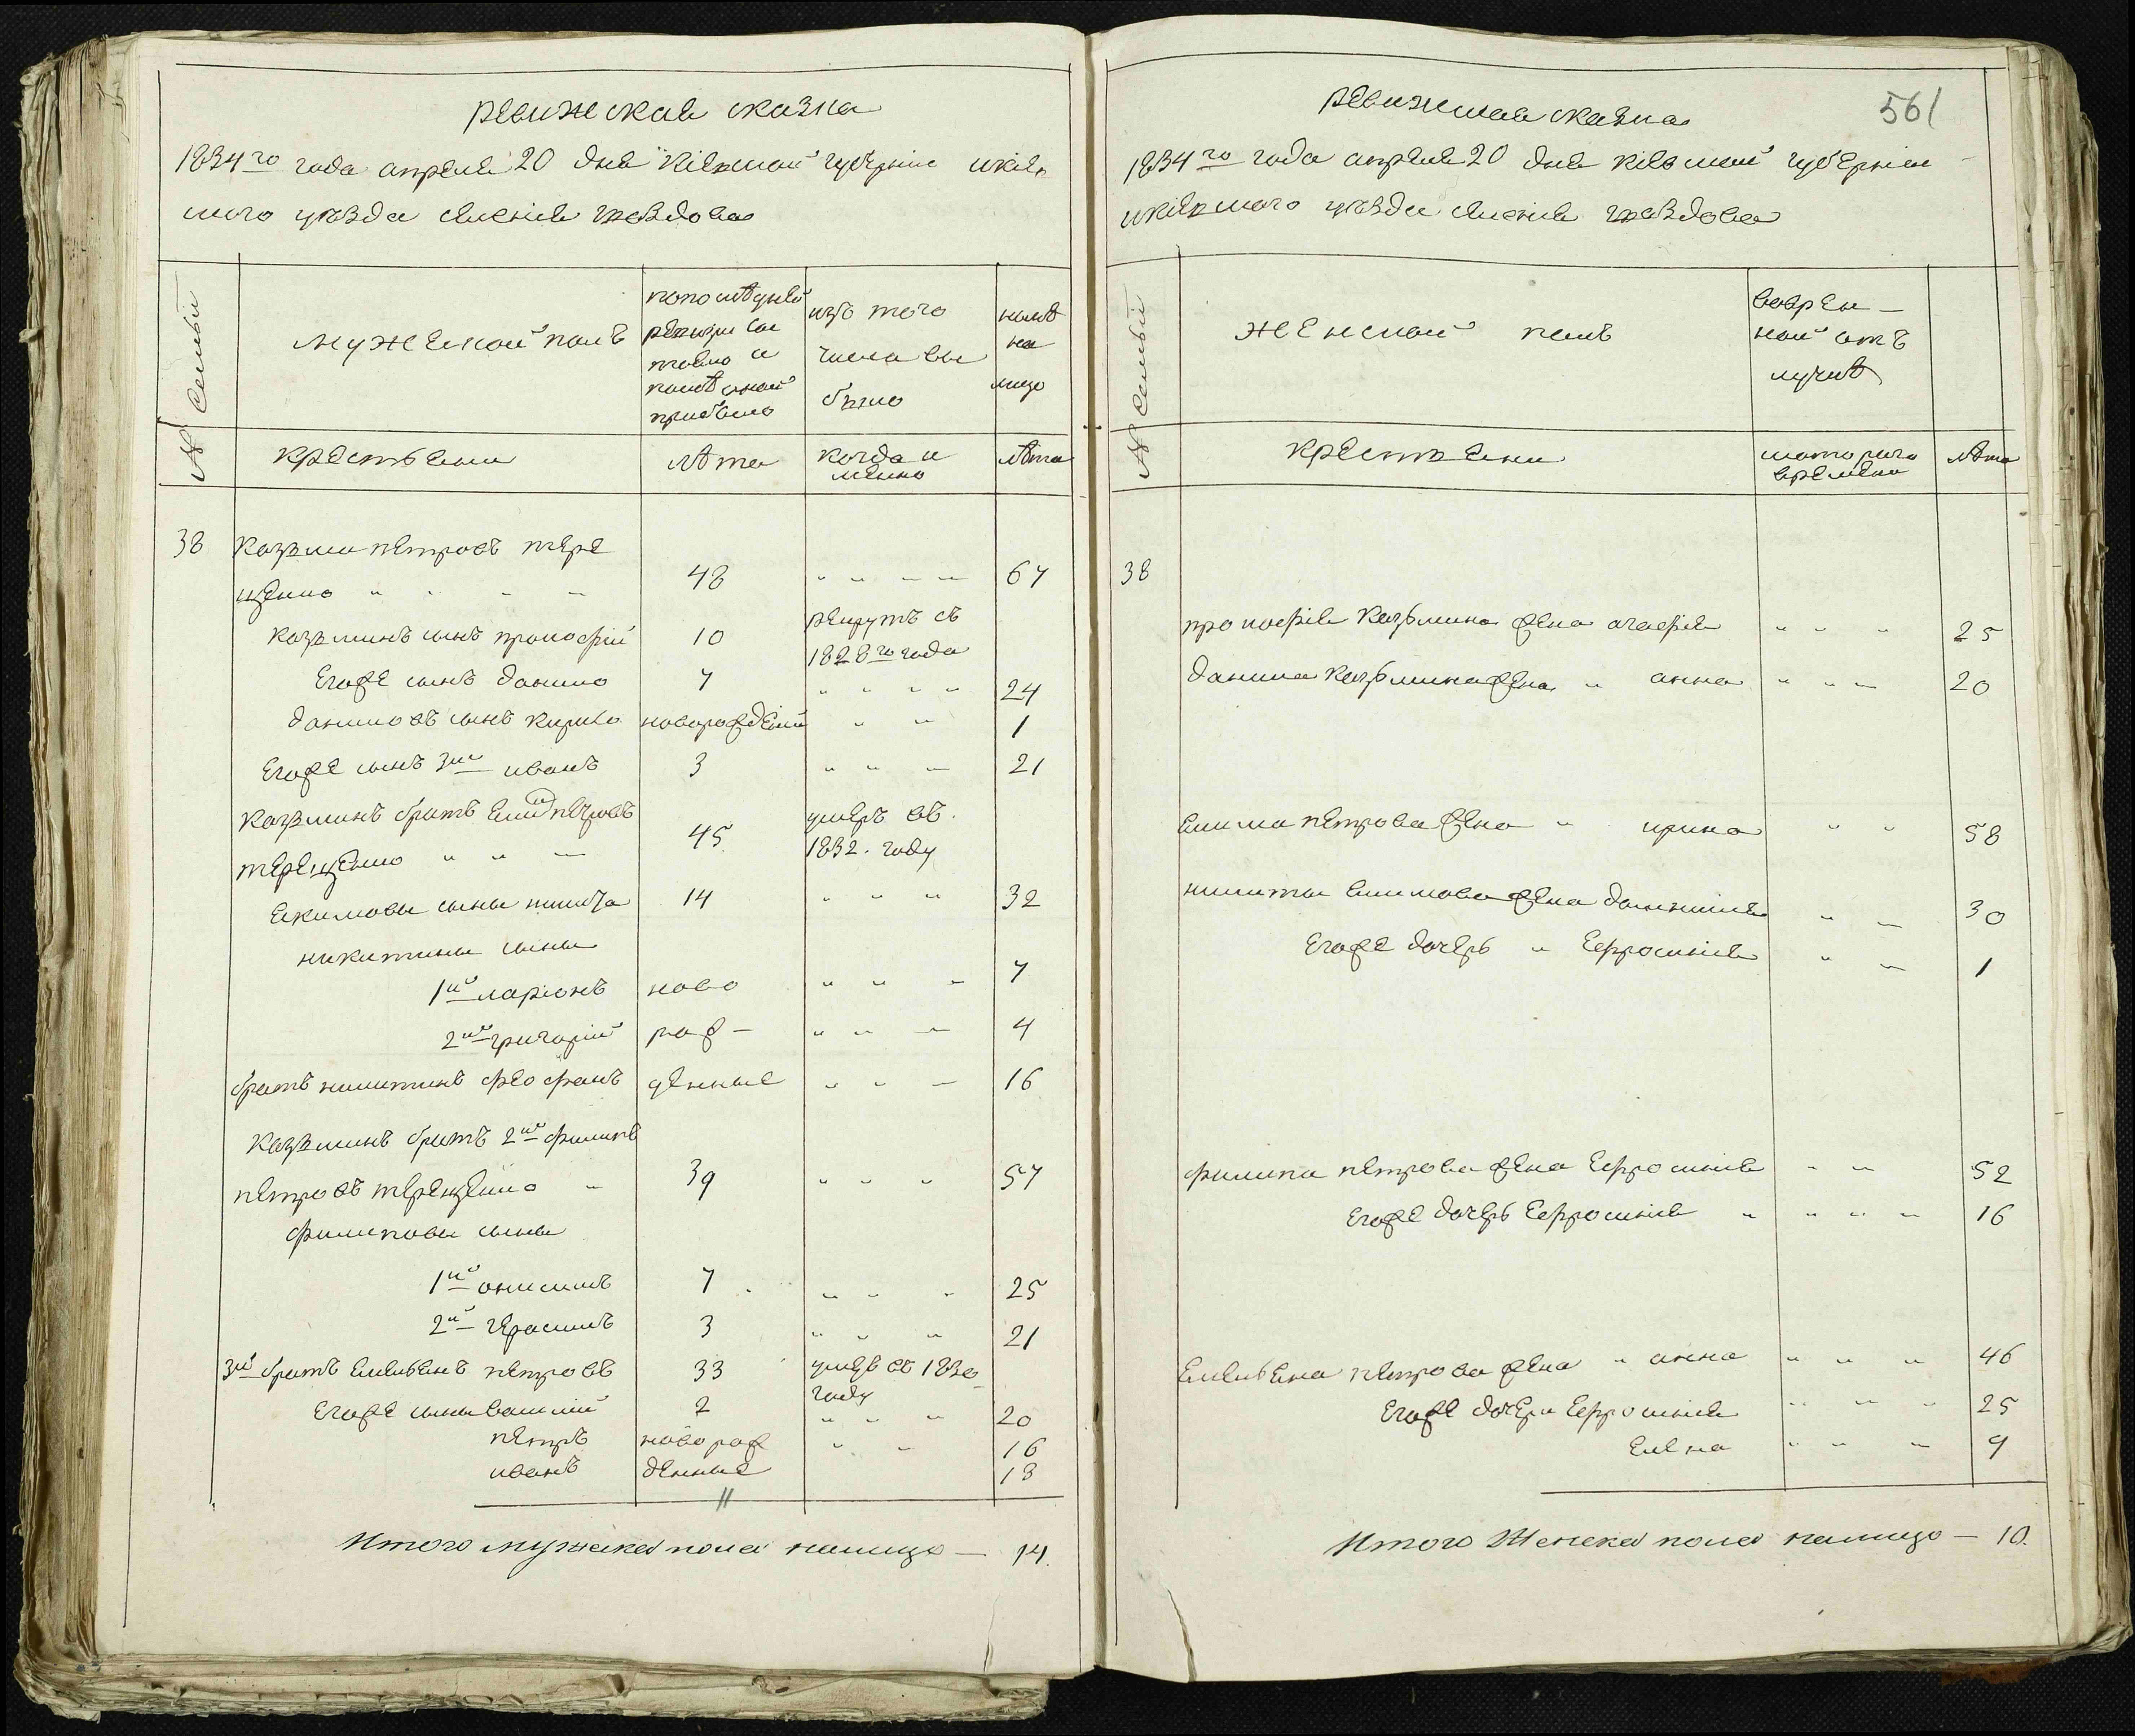 ревижская сказка
1834го года апреля 20 дня Кіевской губерніи икіев
ского уѣзда селенія гвоздова
№ Семьи
мужеской полъ
попослѣдней
ревизіи со
тояло и
послѣ оной
прибыло
изъ того
числа вы
было
нынѣ
на
лицо
крестьяни
лѣта
когда и
менно
лѣта
38 Козьма петровъ тере
щенко " " " " 48 " " " " 67
Козьминъ сынъ прокофій 10 рекрутъ съ
1828го года
Егоже сынъ данило 7 " " " " 24
даниловъ сынъ кирило новорожденій " " 1
Егоже сынъ 3ий иванъ 3 " " " 21
Козьминъ братъ Екимъ петровъ
терещенко " " " 45 умеръ въ
1832. году
Екимовы сыны никита 14 " " " 32
никитины сыны
1ий ларіонъ ново " " " 7
2ий григорій рож- " " " 4
братъ никитинъ феофанъ денные " " " 16
Козьминъ братъ 2ий филипъ
петровъ терещенко " 39 " " " 57
филиповы сыны
1ий онисимъ 7 " " " 25
2й герасимъ 3 " " " 21
3й братъ Емельянъ петровъ 33 умеръ въ 1830
году
Егоже сыны василий 2 " " " 20
петръ новорож " " 16
иванъ денные 13
11
Итого мужеска пола налицо — 14.
561
ревижская сказка
1834го года апреля 20 дня Кіевской губерніи
икіевского уѣзда селенія гвоздова
№ Семьи
женской полъ
вовремен-
ной отъ
лучкѣ
крестьяни
скоторого
времени
лѣта
38
прокофія Козьмина жена агафія " " " 25
данила Козьмина жена " анна " " " 20
Екима петрова жена " ирина " " 58
никиты Екимова жена домникія " " 30
Егоже дочерь " Ефросинія " " 1
филипа петрова жена Ефросинія " " 52
Егоже дочерь Ефросинія " " " " 16
Емельяна петрова жена " анна " " " 46
Егоже дочери Ефросинія " " " 25
Елена " " " 9
Итого Женска пола налицо — 10.